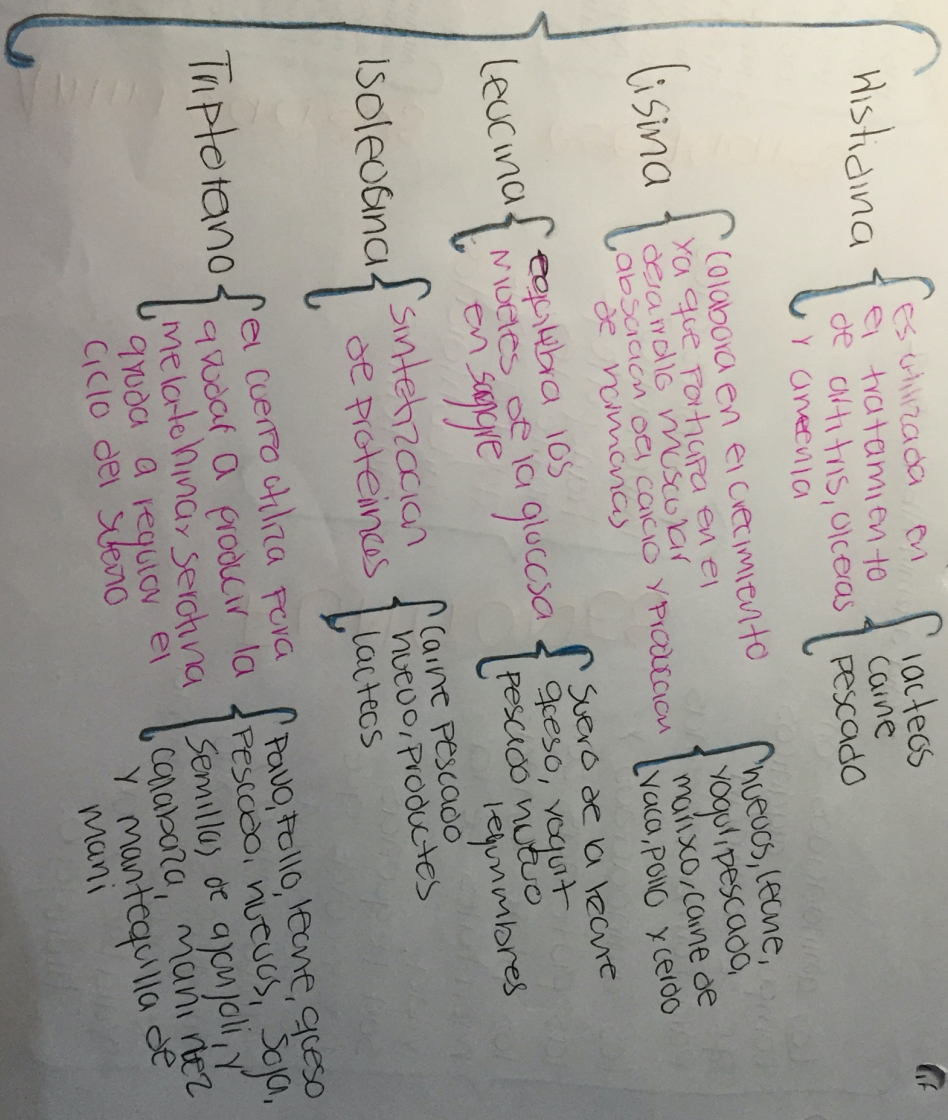 Histidina
es utilizada en
el tratamiento
de artitris, ulceras
y anemia
lacteos
carne
pescado
Lisina
Colabora en el crecimiento
ya que participa en el
desarrollo muscular
absorcion del calcio y Produccion
de hormonas
huevos, leche,
yogur, pescado,
marixco, carne de
vaca, pollo y cerdo
Leucina
equilibra los
niveles de la glucosa
en sangre
Suero de la leche
queso, yogurt
pescado huevo
legumbres
Isoleucina
Sintetizacion
de proteinas
Carne pescado
huevo, productes
lacteos
Triptofano
el cuerpo utiliza para
ayudar a producir la
melatohina y
ayuda a regular el
ciclo del sueño
Pavo, Pollo, leche, queso
Pescado, huevos, Soja,
Semillas de ajonjoli, y
calabaza, mani
y mantequilla de
mani